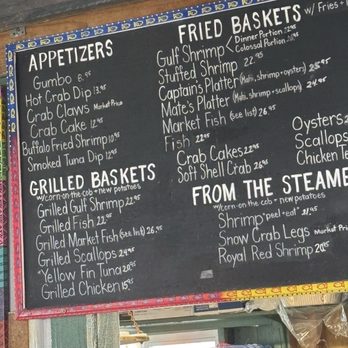 APPETIZERS
Gumbo 8.95
Hot Crab Dip 13.95
Crab Claws Market Price
Crab Cake 12.95
Buffalo Fried Shrimp 10.95
Smoked Tuna Dip 12.95
GRILLED BASKETS
w/corn-on the cob + new potatoes
Grilled Gulf Shrimp 22.95
Grilled Fish 22.95
Grilled Market Fish (see list) 26.95
Grilled Scallops 24.95
*Yellow Fin Tuna
Grilled Chicken
FRIED BASKETS w/ Fries +
Gulf Shrimp < Dinner Portion
Colossal Portion
Stuffed Shrimp 22.95
Captain's Platter (Mahi, shrimp + oysters)
Mate's Platter (Mahi, shrimp + scallops) 24.95
Market Fish (see list) 26.95
Fish 22.95
Crab Cakes 22.95
Soft Shell Crab 26.95
Oysters
Scallops
Chicken Te
FROM THE STEAME
w/corn-on the cob + new potatoes
Shrimp "peel + eat" 21.95
Snow Crab Legs Market Pri
Royal Red Shrimp